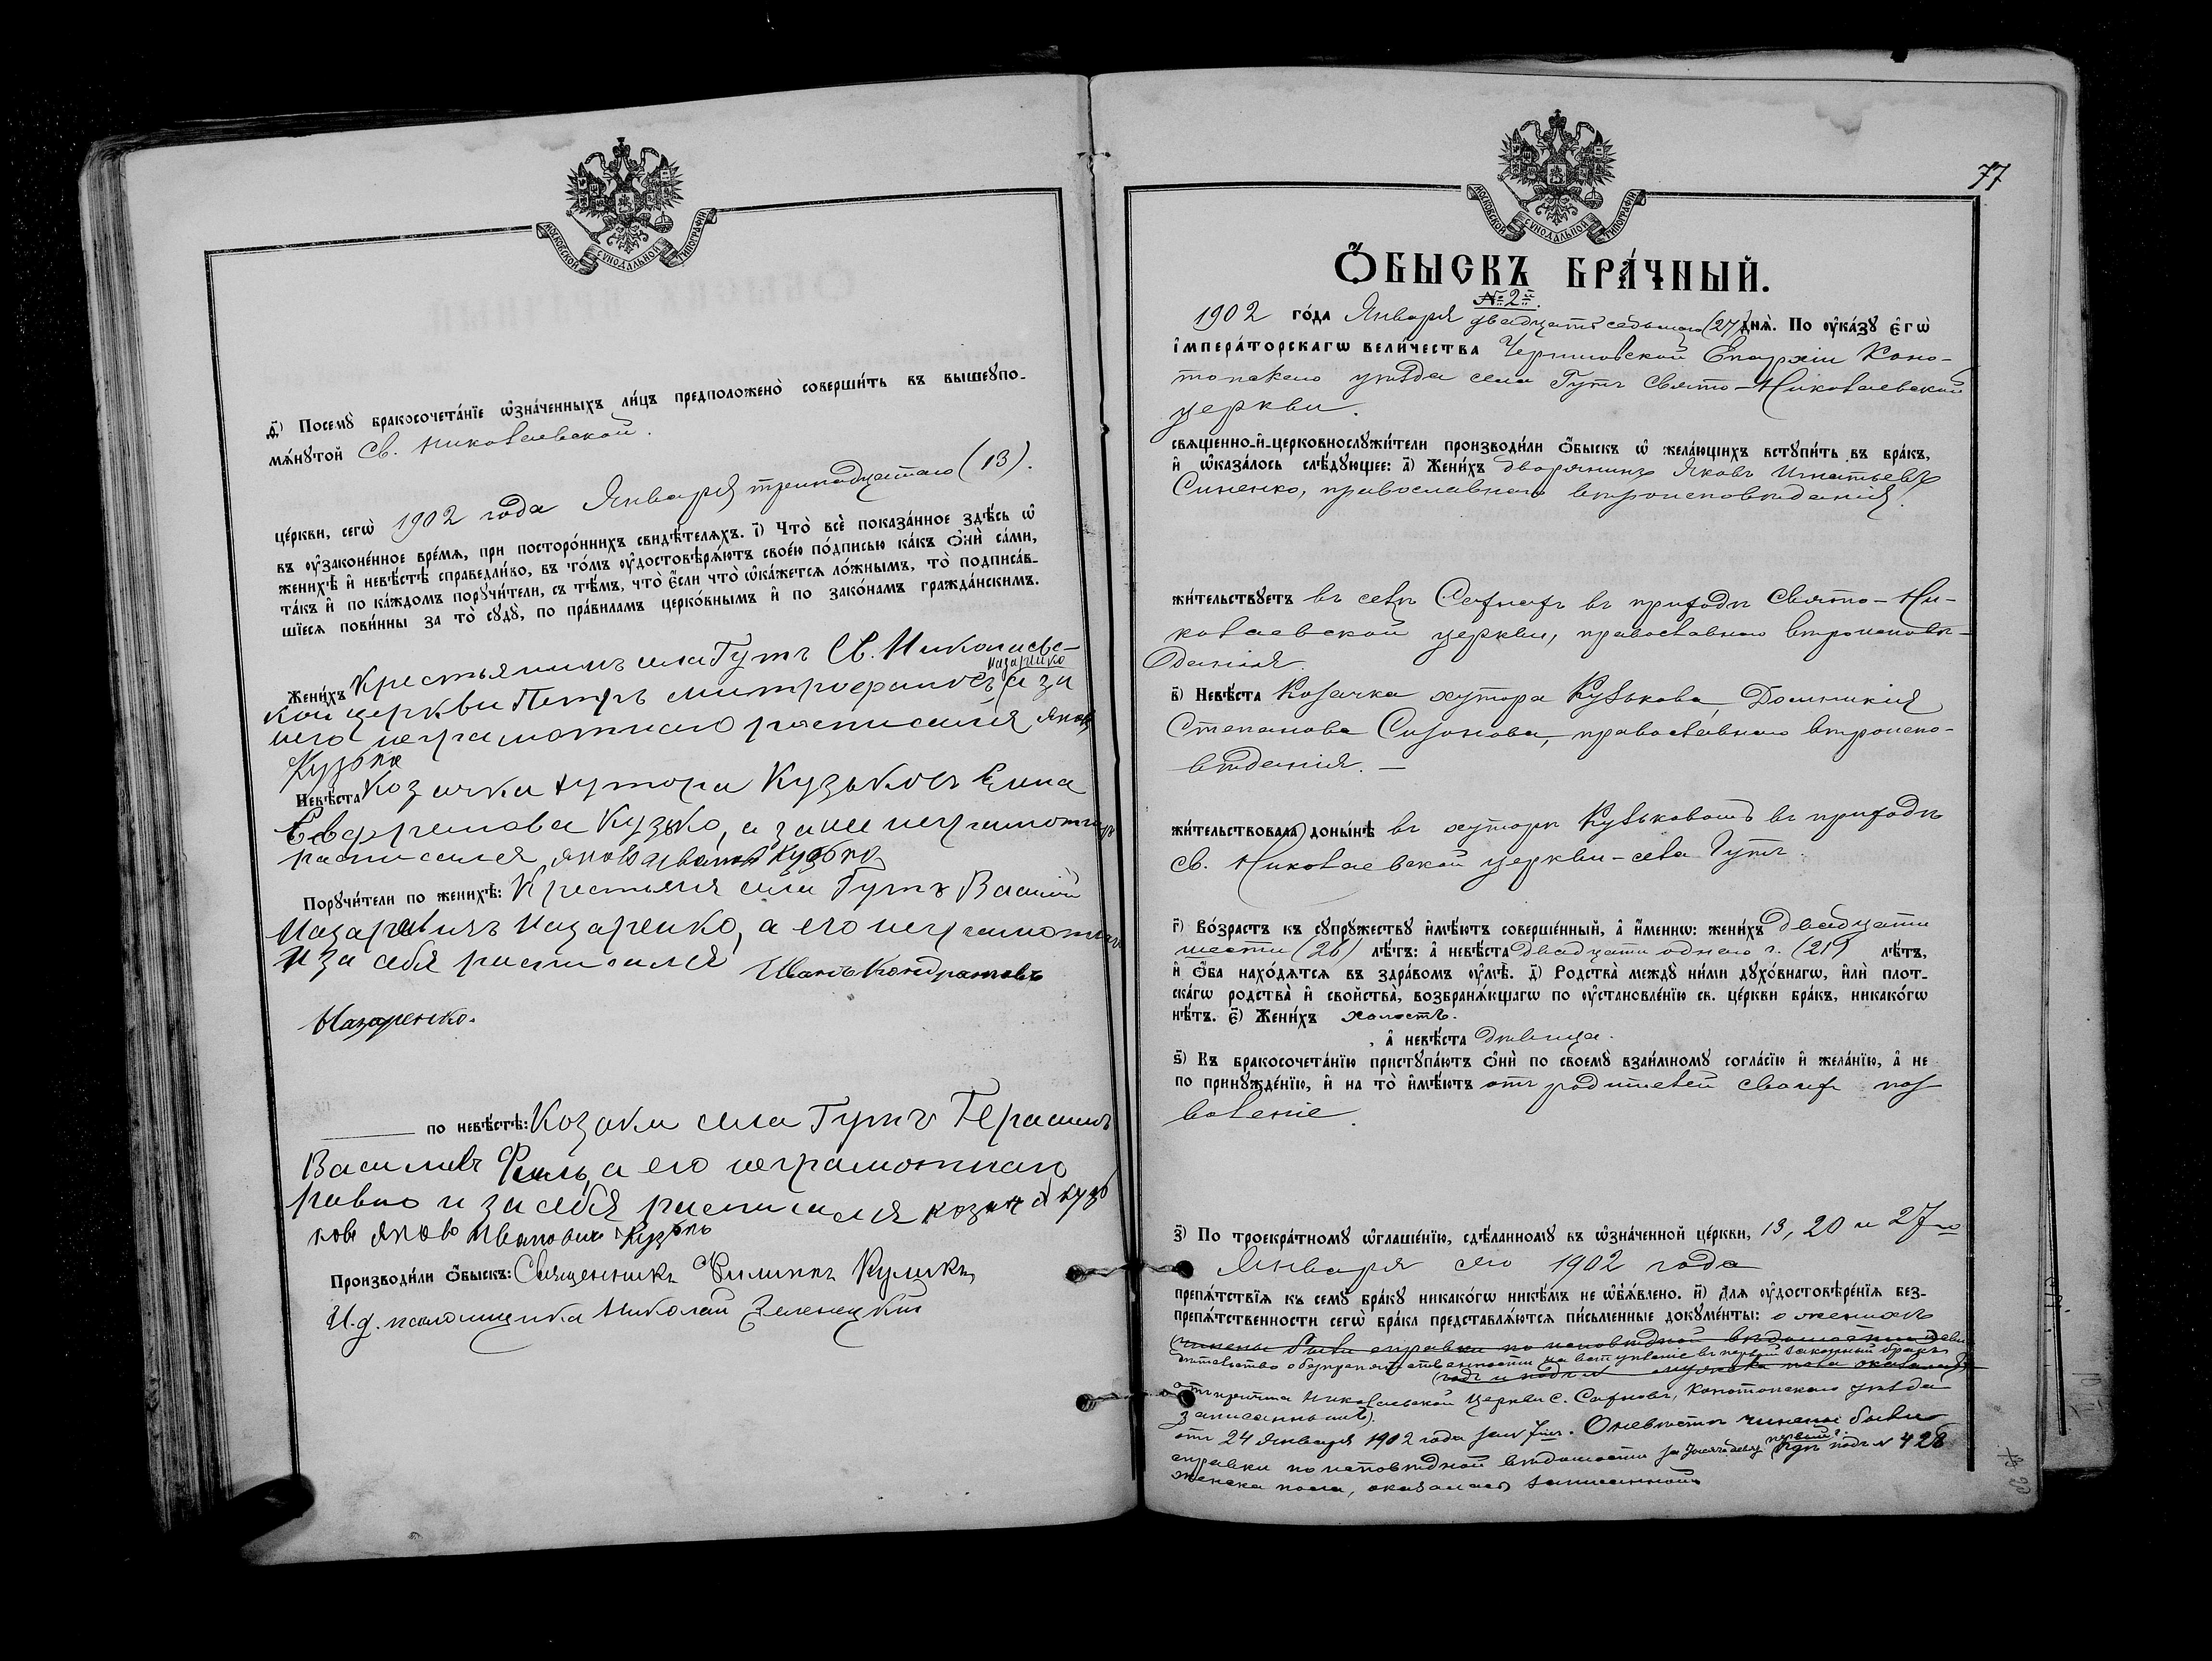 МОСКОВСКОЙ СѴНОДАЛЬНОЙ ТИПОГРАФІИ
ѳ҃) Посемꙋ̀ бракосочета́нїе ѡ҆зна́ченныхъ ли́цъ предположено̀ соверши́ть въ вышеꙋпо-
мѧ́нꙋтой Св. Николаевской.
це́ркви, сегѡ̀ 1902 года Января тринадцатаго (13).
въ ᲂу҆законе́нное вре́мѧ, при посторо́ннихъ свидѣ́телѧхъ. і҃) Что̀ всѐ показа́нное здѣ́сь ѡ҆
женихѣ̀ и҆ невѣ́стѣ справедли́во, въ то́мъ ᲂу҆достовѣрѧ́ютъ свое́ю по́дписью ка́къ ѻ҆нѝ са́ми,
та́къ и҆ по ка́ждомъ порꙋчи́тели, съ тѣ́мъ, что̀ є҆́сли что̀ ѡ҆ка́жетсѧ ло́жнымъ, то̀ подписа́в-
шїесѧ пови́нны за то̀ сꙋдꙋ̀, по пра́виламъ церко́внымъ и҆ по зако́намъ гражда́нскимъ.
Жени́хъ Крестьянинъ села Гутъ Св. Николаевс-
кой церкви Петръ Митрофановъ Назаренко, а за
него неграмотнаго росписался Яковъ
Кузько
Невѣ́ста Козачка хутора Кузьковъ Елена
Евфремова Кузько, а за нее неграмотную
расписался Яковъ Ивановъ Кузько
Порꙋчи́тели по женихѣ̀: Крестьяне села Гутъ Василій
Назаренко, а его неграмотнаго
и за себя расписался Иванъ Кондратовъ
Назаренко.
по невѣ́стѣ: Козаки села Гутъ Герасимъ
Васильевъ а его неграмотнаго
равно и за себя расписался козакъ х Кузь
ковъ Яковъ Ивановичъ Кузько
Производи́ли ѻ҆́быскъ: Священникъ Филиппъ Куликъ
И.д. псаломщика Николай Зеленецкій
77
МОСКОВСКОЙ СѴНОДАЛЬНОЙ ТИПОГРАФІИ
Ѻ҆́БЫСКЪ БРА́ЧНЫЙ.
№ 2й.
1902 го́да Января двадцать седьмаго (27) днѧ̀. По ᲂу҆ка́зꙋ є҆гѡ̀
і҆мпера́торскагѡ вели́чества Черниговской Епархіи Коно-
топскаго уѣзда села Гутъ Свято-Николаевской
церкви.
свѧще́нно-и҆-церковнослꙋжи́тели производи́ли ѻ҆́быскъ ѡ҆ жела́ющихъ встꙋпи́ть въ бра́къ,
и҆ ѡ҆каза́лось слѣ́дꙋющее: а҃) Жени́хъ дворянинъ Яковъ Игнатьевъ
Синенко, православнаго вѣроисповѣданія.
жи́тельствꙋетъ въ селѣ въ приходѣ Свято-Ни-
колаевской церкви, православнаго вѣроисповѣ-
данія.
в҃) Невѣ́ста Козачка хутора Кузькова, Домникія
Степанова православнаго вѣроиспо-
вѣданія. —
жи́тельствовала доны́нѣ въ хуторѣ Кузьковомъ въ приходѣ
св. Николаевской церкви - села Гутъ.
г҃) Во́зрастъ къ сꙋпрꙋ́жествꙋ и҆мѣ́ютъ соверше́нный, а҆ и҆́меннѡ: жени́хъ двадцати
шести (26) лѣ́тъ: а҆ невѣ́ста двадцати одного г. (21) лѣ́тъ,
и҆ ѻ҆́ба нахо́дѧтсѧ въ здра́вомъ ᲂу҆мѣ̀. д҃) Родства̀ междꙋ ни́ми дꙋхо́внагѡ, и҆лѝ плот-
ска́гѡ родства̀ и҆ свойства̀, возбранѧ́ющагѡ по ᲂу҆становле́нїю св. це́ркви бра́къ, никако́гѡ
нѣ́тъ. є҃) Жени́хъ холостъ.
, а҆ невѣ́ста дѣвица.
ѕ҃) Къ бракосочета́нїю пристꙋпа́ютъ ѻ҆нѝ по своемꙋ̀ взаи́мномꙋ согла́сїю и҆ жела́нїю, а҆ не
по принꙋжде́нїю, и҆ на то̀ и҆мѣ́ютъ отъ родителей своихъ поз
воленіе.
з҃) По троекра́тномꙋ ѡ҆глаше́нїю, сдѣ́ланномꙋ въ ѡ҆зна́ченной це́ркви, 13, 20 и 27го
Января сего 1902 года
препѧ́тствїѧ къ семꙋ̀ бра́кꙋ никако́гѡ никѣ́мъ не ѡ҆б̾ѧ́влено. и҃) Длѧ ᲂу҆достовѣре́нїѧ без-
препѧ́тственности сегѡ̀ бра́ка представлѧ́ютсѧ пи́сьменные докꙋме́нты: о женихѣ
чинены были справки по исповѣдной вѣдомости
дѣтельство о безпрепятственности на вступленіе въ первый законный бракъ
годъ и подъ № мужска пола оказался
отъ причта Николаевской церкви с. Конотопскаго уѣзда
записаннымъ).
отъ 24 Января 1902 года за № 7мъ. О невѣстѣ чинены были
справки по исповѣдной вѣдомости за первый г. подъ № 428
женска пола, оказалась записанною